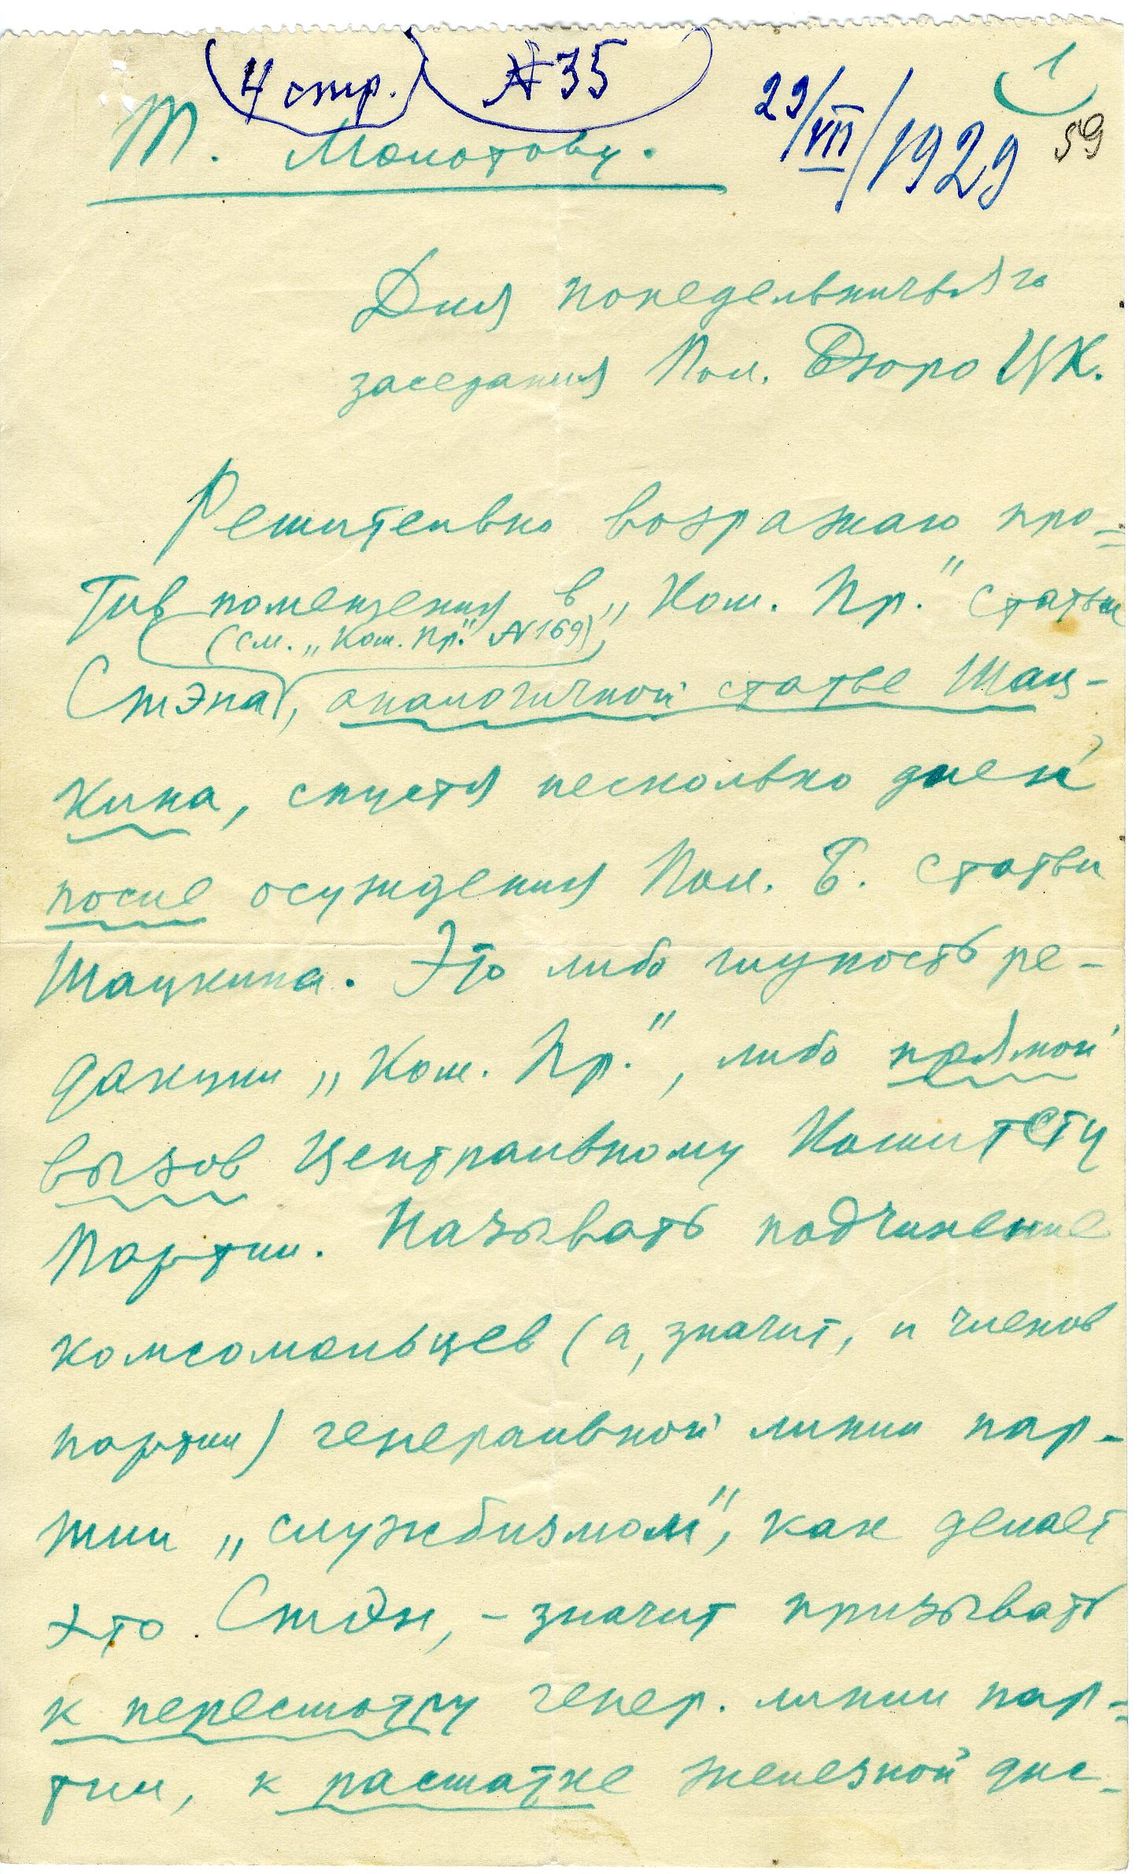 (4 стр.) №35
29/VII/1929
1
59
Т. Молотову.
Для понедельничьяго
заседания Пол. Бюро ЦК.
Решительно возражаю про-
тив помещения в „Ком. Пр." статьи
(см. „Ком. Пр." №169)
Стэна, аналогичной статье Шац-
кина, спустя несколько дней
после осуждения Пол. Б. статьи
Шацкина. Это либо глупость ре-
дакции „Ком. Пр.", либо прямой
вызов Центральному Комитету
Партии. Называть подчинение
комсомольцев (а, значит, и членов
партии) генеральной линии пар-
тии „службизмом", как делает
это Стэн, – значит призывать
к пересмотру генер. линии пар-
тии, к расшатке железной дис-